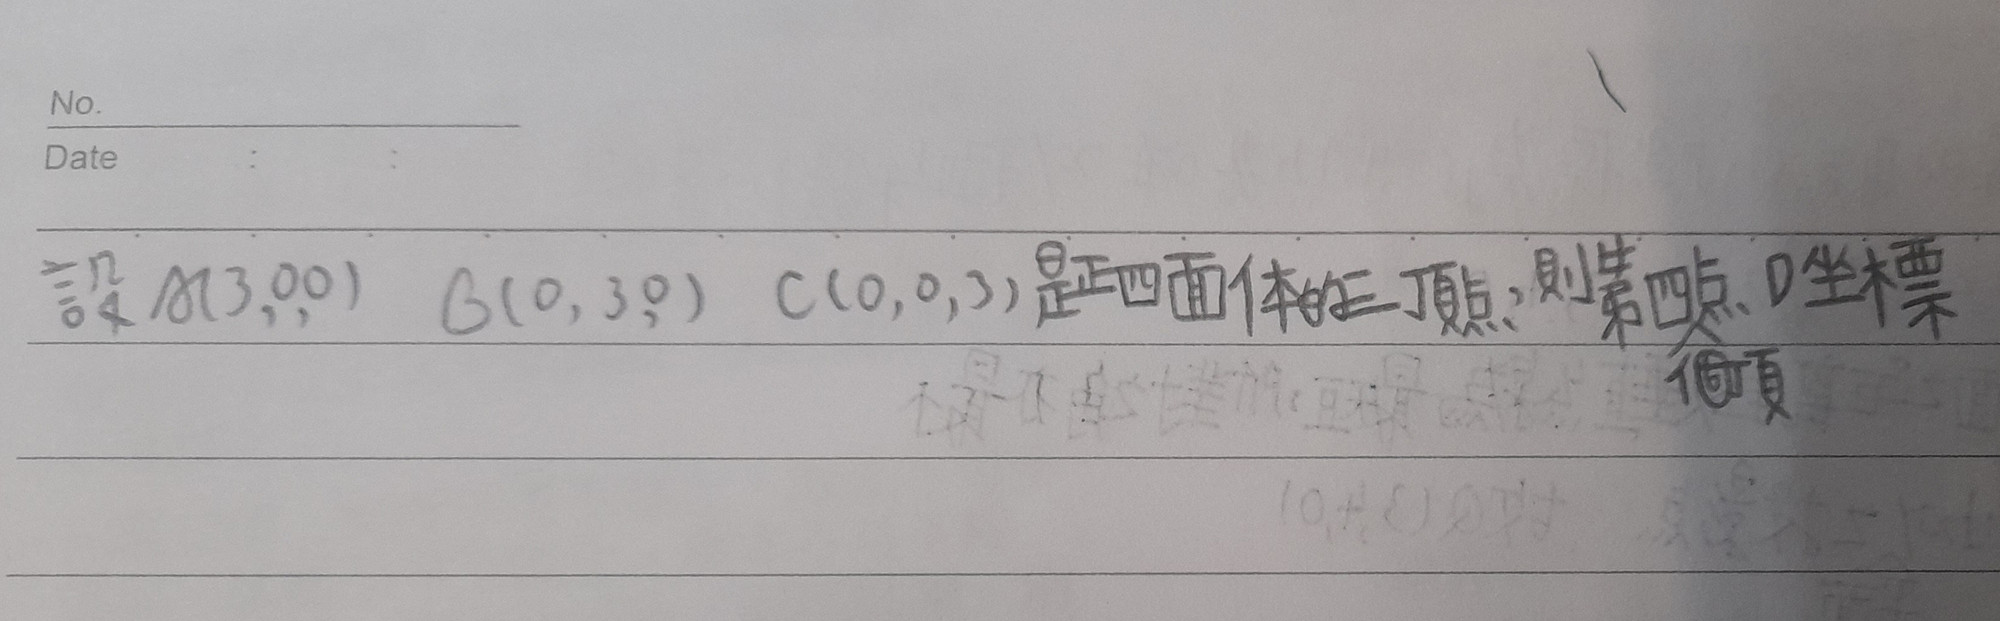 No.
Date : :
設 A(3,0,0) B(0,3,0) C(0,0,3)是正四面体的三頂点,則第四点、D坐標
個頂